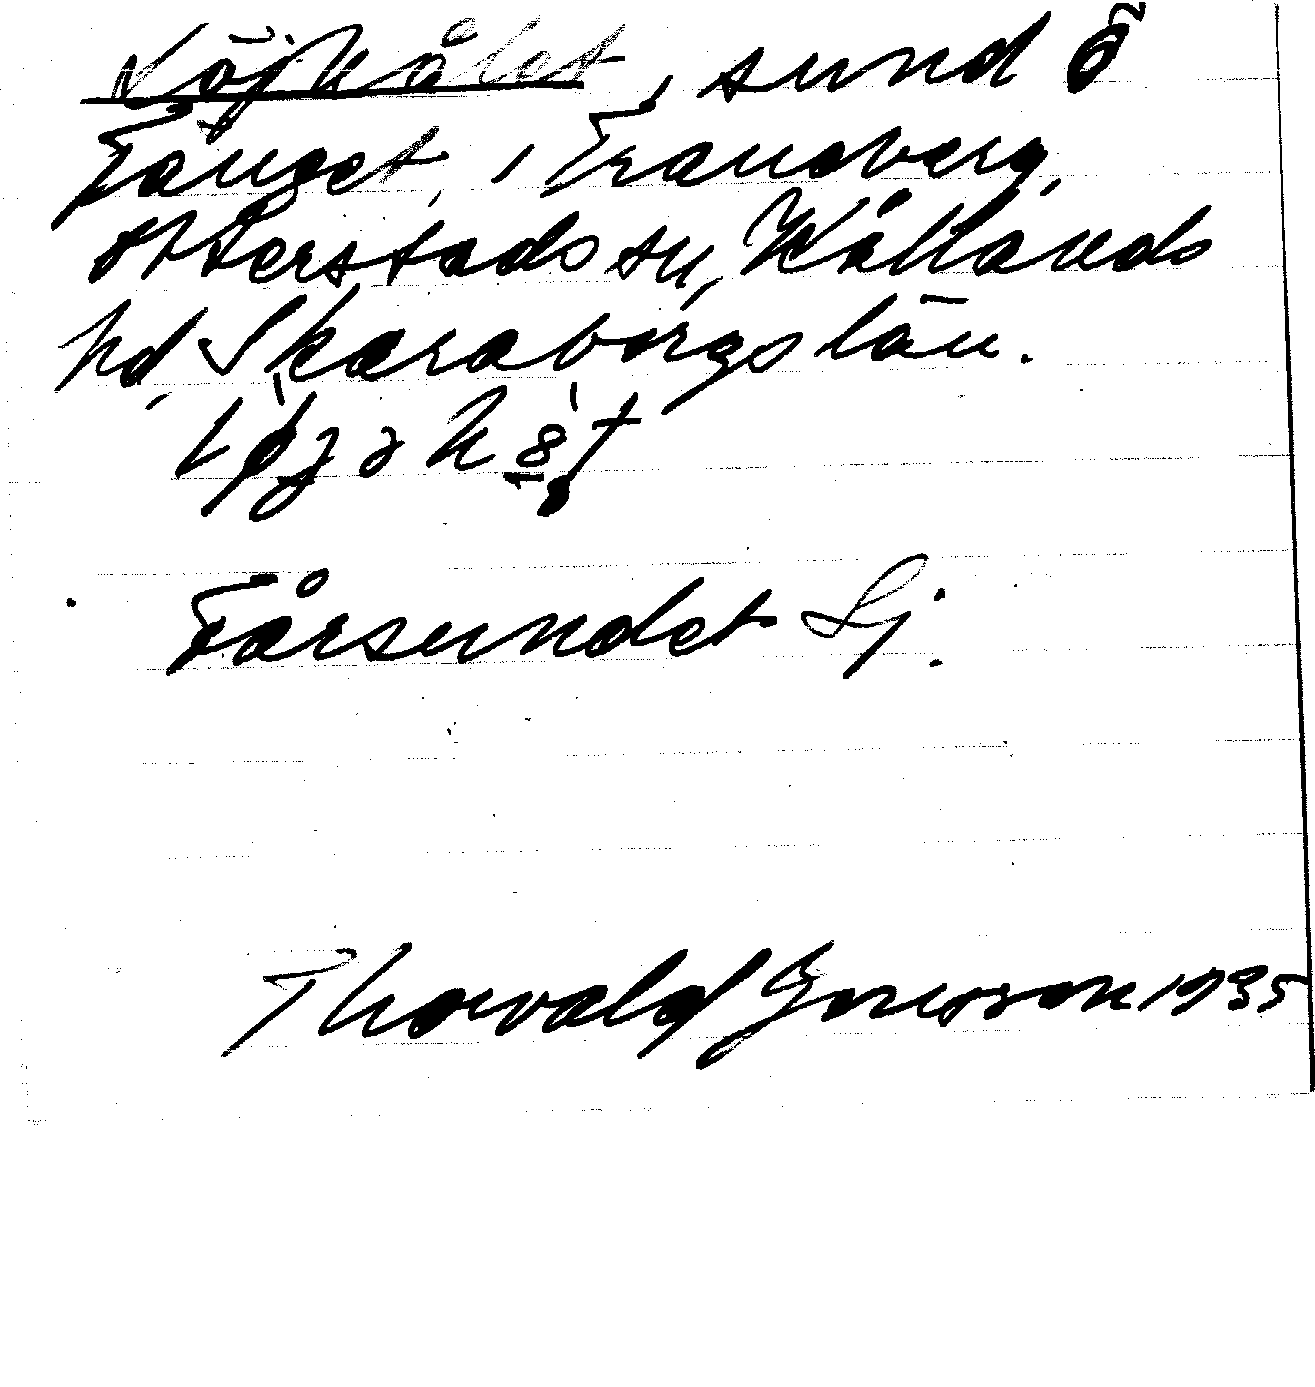 Löjhålet, sund Ö
Fånget, Traneberg,
Otterstads sn, Kållands
hd, Skaraborgs län.
Fårsundet Sj.
Thorvald Jonsson 1935